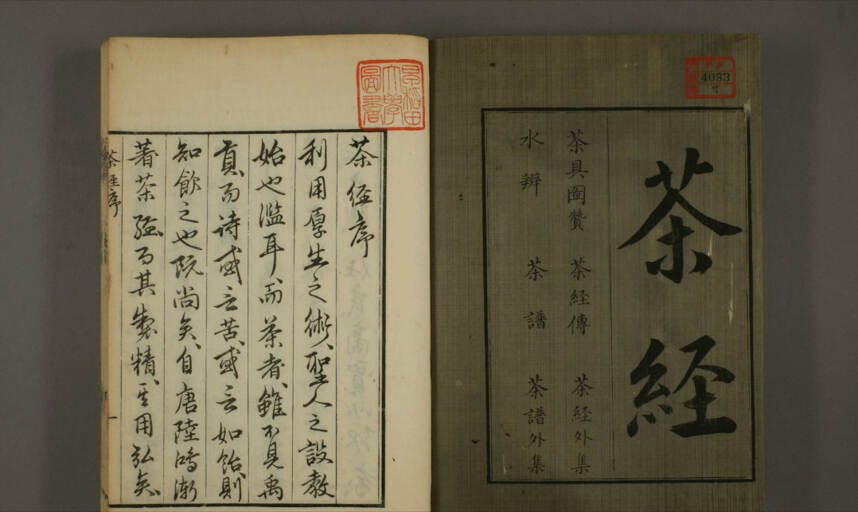 4083
茶経
茶具圖贊 茶経傳 茶経外集
水辨 茶譜 茶譜外集
早稻田
大學
圖書
茶経序
利用厚生之術、聖人之設教
始也濫耳、而茶者、雖不見禹
貢、而詩或言苦、或云如飴、則
知飲之也既尚矣、自唐陸鴻漸
著茶経而其製精、其用弘矣、
茶経序 一